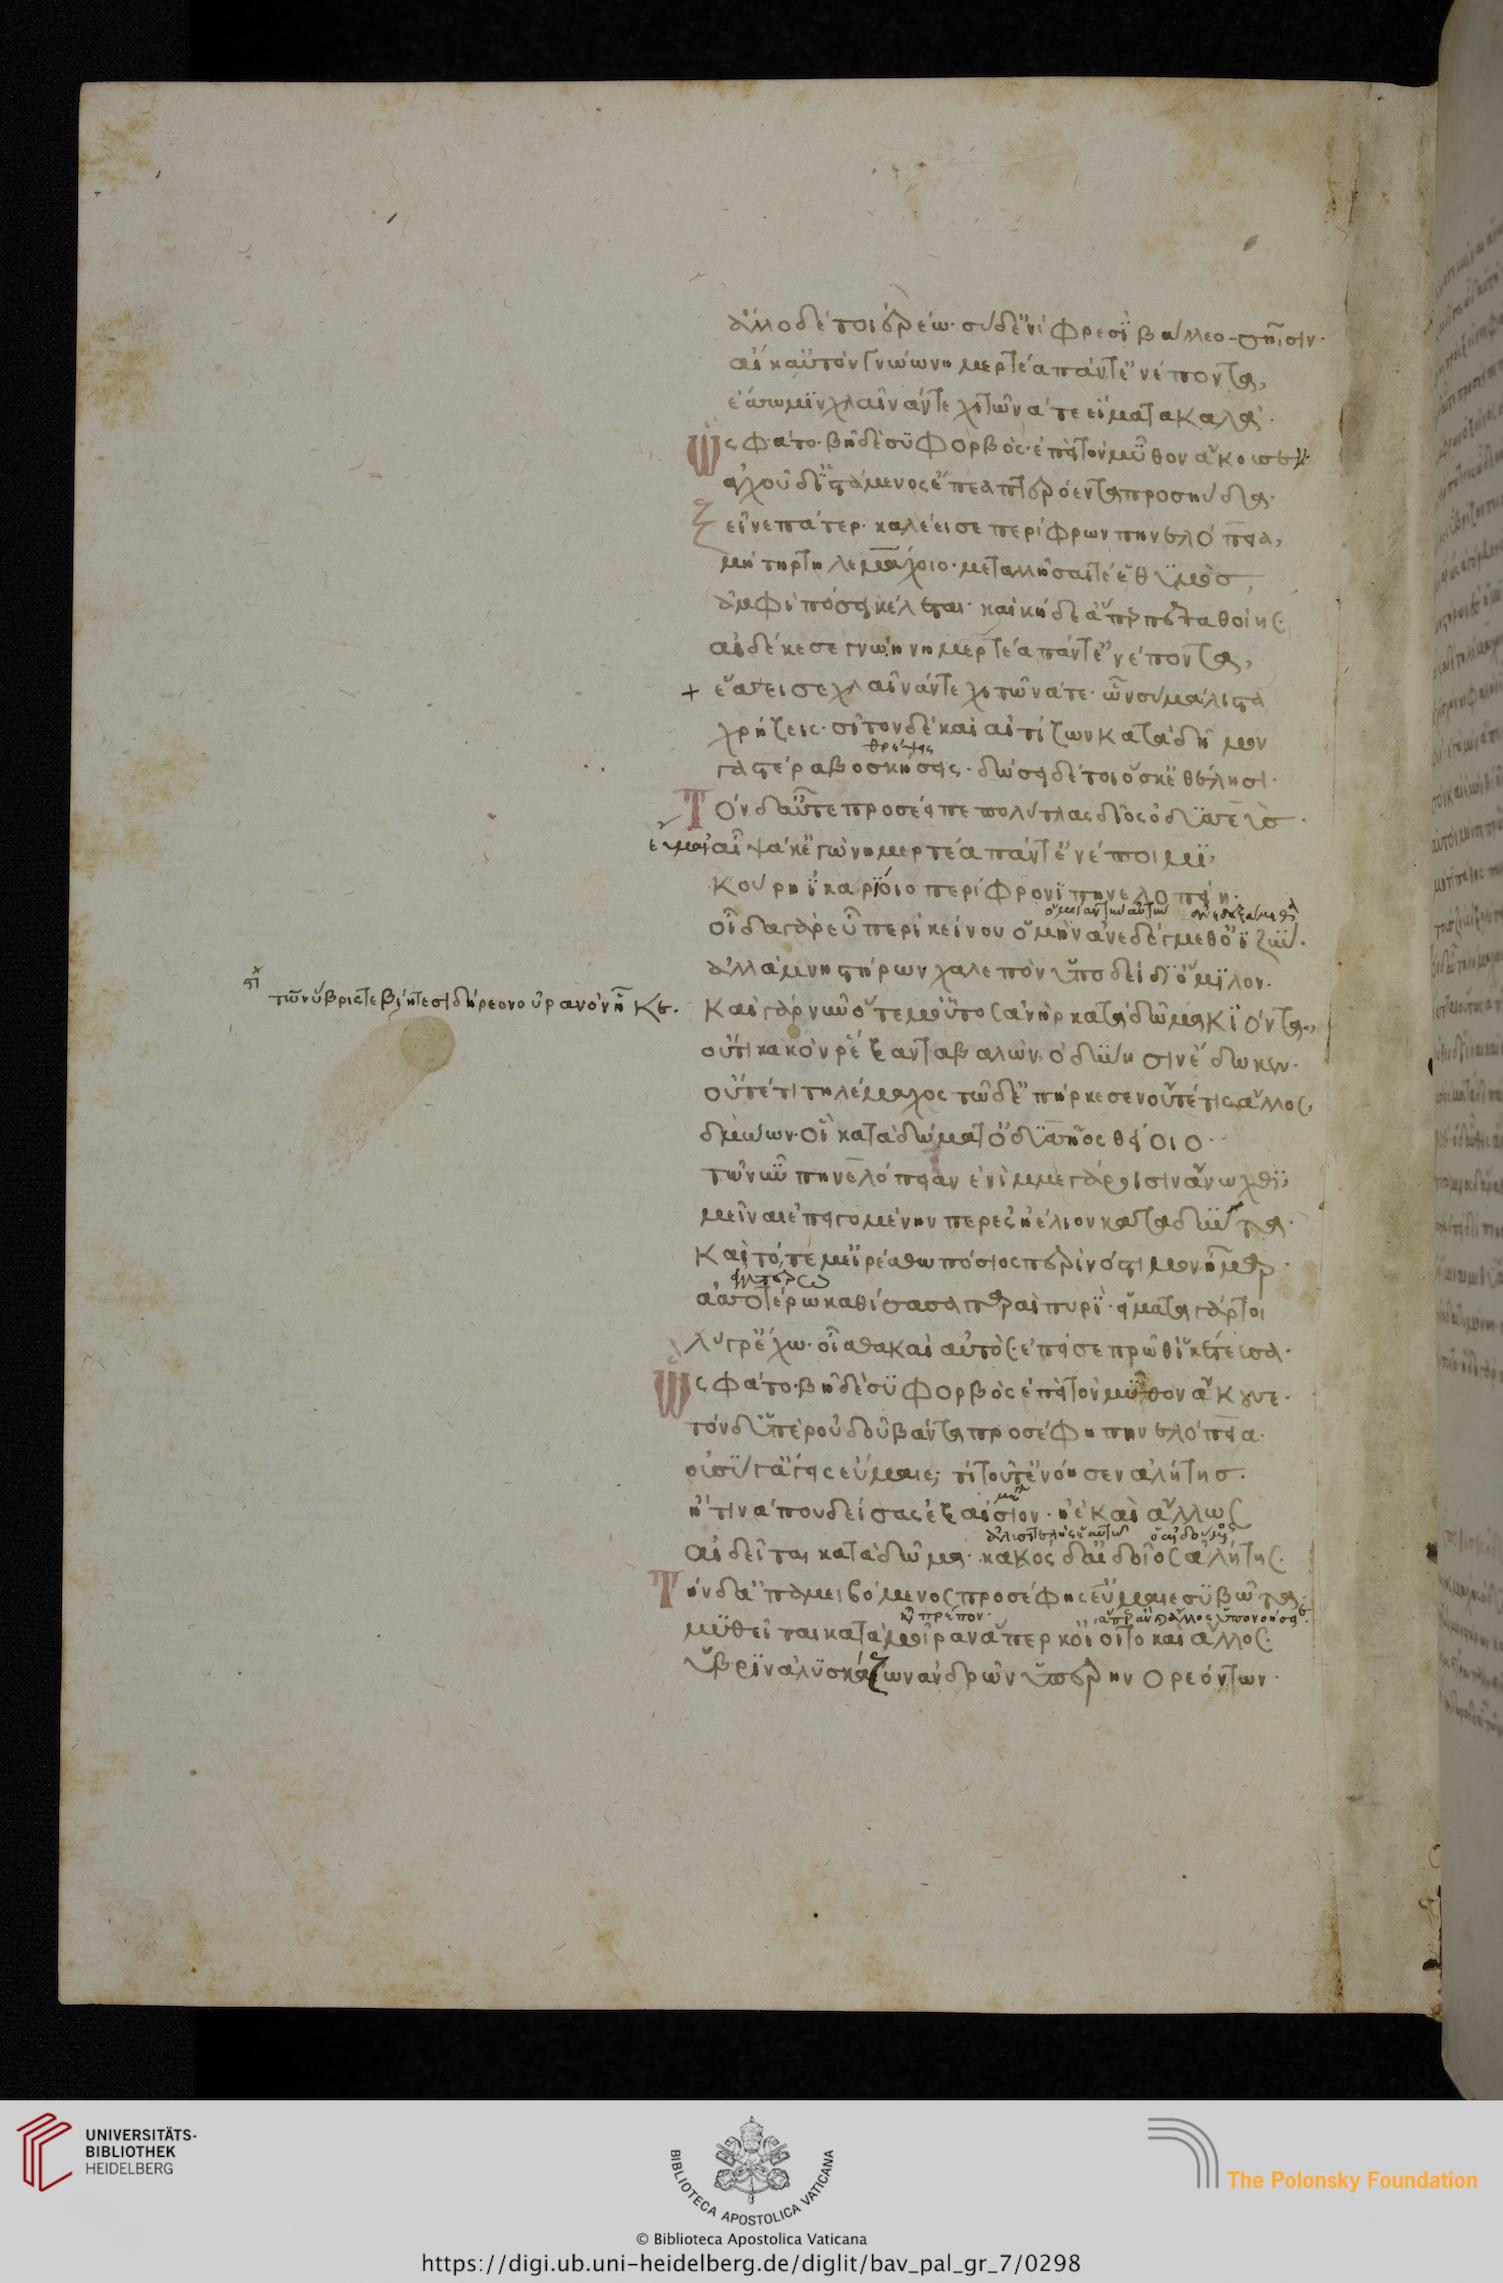 ἄλλο δέ τοι ἐρέω· σὺ δ' ἐνὶ φρεσὶ βάλλεο σῇσιν·
αἴ κ' αὐτὸν γνώω νημερτέα πάντ' ἐνέποντα,
ἕσσω μιν χλαῖνάν τε χιτῶνά τε εἵματα καλά·
Ὣς φάτο· βῆ δὲ συφορβὸς ἐπεὶ τὸν μῦθον ἄκουσεν·
ἀγχοῦ δ' ἱστάμενος ἔπεα πτερόεντα προσηύδα·
ξεῖνε πάτερ· καλέει σε περίφρων πηνελόπεια,
μήτηρ τηλεμάχοιο· μεταλλῆσαί τέ ἑ θυμὸσ,
ἀμφὶ πόσει κέλεται· καὶ κήδεά περ πεπαθοίης·
αἰ δέ κέ σε γνώῃ νημερτέα πάντ' ἐνέποντα,
+ ἕσσει σε χλαῖνάν τε χιτῶνά τε· τῶν σὺ μάλιστα
χρήζεις· σῖτον δὲ καὶ αἰτίζων κατὰ δῆμον
θρέψεις
γαστέρα βοσκήσεις· δώσει δέ τοι ὅς κ' ἐθέλησι·
Τὸν δ' αὖτε προσέειπε πολύτλας δῖος ὀδυσσεὺσ·
εὔμαι' αἶψά κ' ἐγὼ νημερτέα πάντ' ἐνέποιμι,
κούρη ἰκαρίοιο περίφρονι πηνελοπείη·
οἶδα γὰρ εὖ περὶ κείνου ὁμὴν ἀνεδέγμεθ' ὀϊζύν·
ἀλλὰ μνηστήρων χαλεπῶν ὑποδείδι' ὅμιλον·
τῶν ὕβρις τε βίη τε σιδήρεον οὐρανὸν ἧκε·
καὶ γὰρ νῦν ὅτε μ' οὗτος ἀνὴρ κατὰ δῶμα κιόντα,
οὔτι κακὸν ῥέξαντα βαλὼν ὀδύνησιν ἔδωκεν·
οὔτέ τι τηλέμαχος τῶδ' ἐπήρκεσεν οὔτέ τις ἄλλος,
δμώων· οἳ κατὰ δώματ' ὀδυσσῆος θείοιο·
τῶ νῦν πηνελόπειαν ἐνὶ μμεγάροισιν ἄνωχθι,
μεῖναι ἐπειγομένην περ ἐς ἠέλιον καταδύντα·
καὶ τότε μ' εἰρέσθω πόσιος πέρι νόστιμον ἦμαρ·
ἀσσοτέρω καθίσασα παραὶ πυρὶ· εἵματα γάρ τοι
λύγρ' ἔχω· οἶσθα καὶ αὐτὸς· ἐπεί σε πρῶθ' ἱκέτευσα·
Ὣς φάτο· βῆ δὲ συφορβὸς ἐπεὶ τὸν μῦθον ἄκουσε·
τὸν δ' ὑπὲρ οὐδοῦ βάντα προσέφη πηνελόπεια·
οὐ σύ γ' ἄγεις εὔμαιε; τί τοῦτ' ἐνόησεν ἀλήτησ·
ἤ τινά που δείσας ἐξαίσιον· ἠὲ καὶ ἄλλως
αἰδεῖται κατὰ δῶμα· κακὸς δ' αἰδοῖος ἀλήτης·
Τὴν δ' ἀπαμειβόμενος προσέφης εὔμαιε συβῶτα·
πρέπον
μυθεῖται κατὰ μοῖραν ἅπερ κ' οἴοιτο καὶ ἄλλος·
ὕβριν ἀλυσκάζων ἀνδρῶν ὑπερηνορεόντων·
UNIVERSITÄTS-
BIBLIOTHEK
HEIDELBERG
BIBLIOTECA APOSTOLICA VATICANA
The Polonsky Foundation
© Biblioteca Apostolica Vaticana
https://digi.ub.uni-heidelberg.de/diglit/bav_pal_gr_7/0298